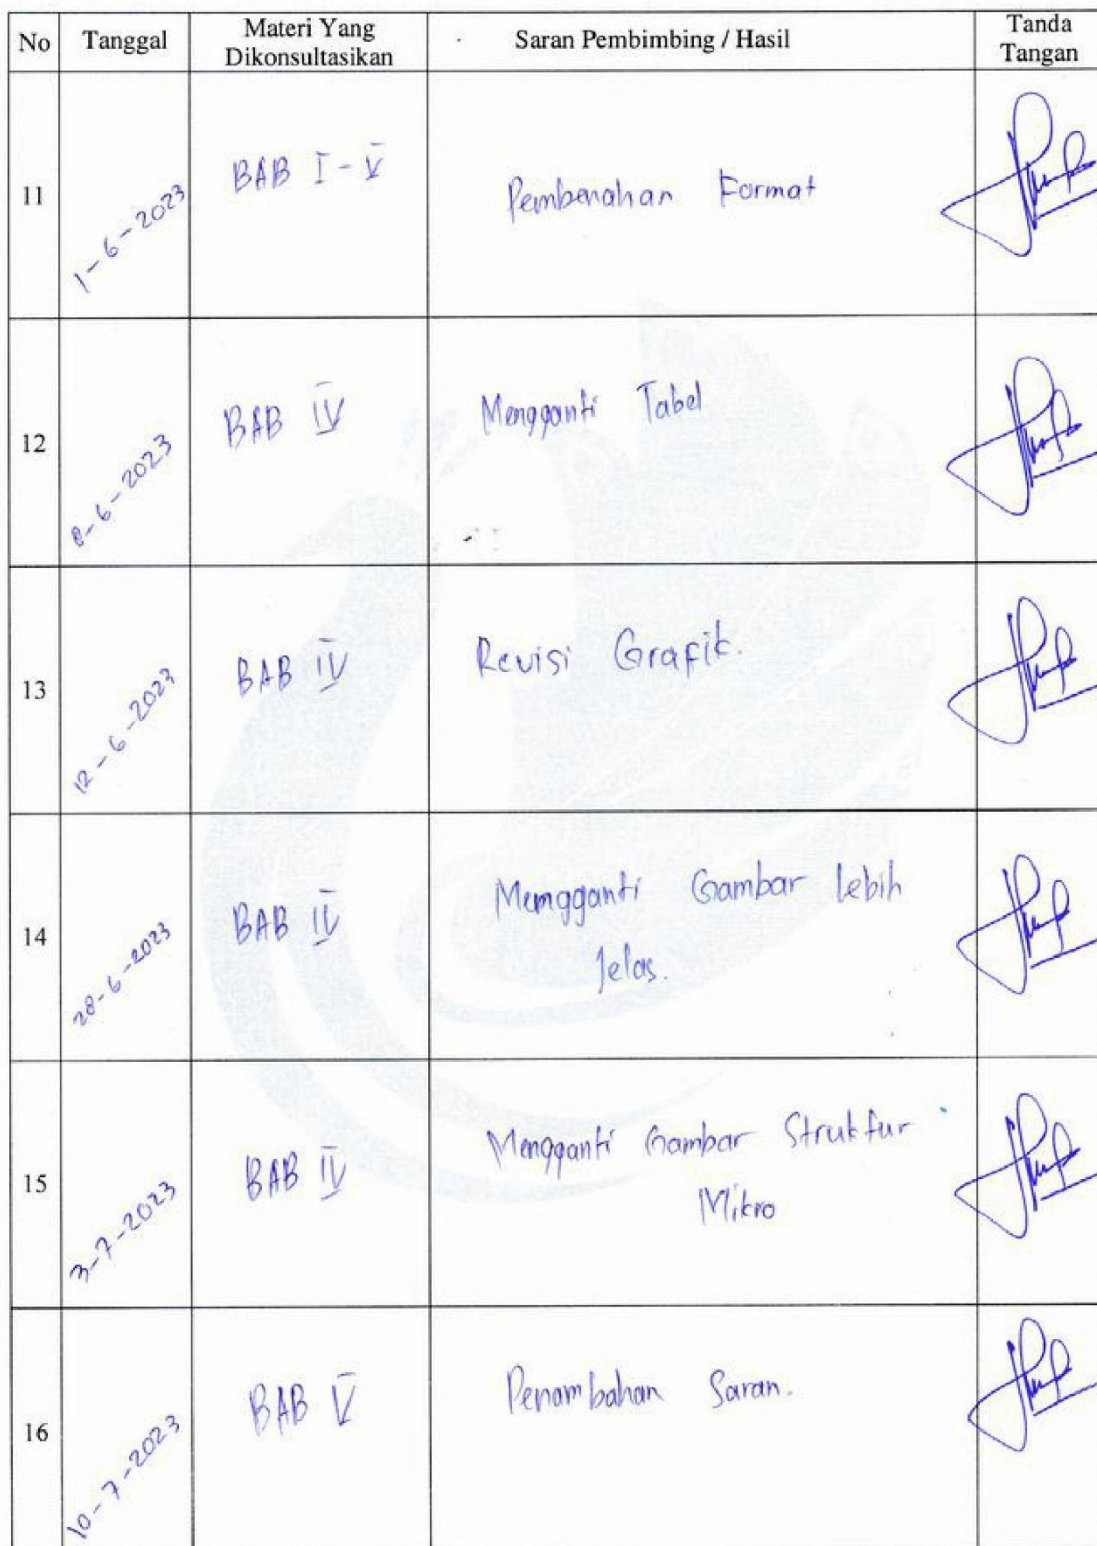 No Tanggal Materi Yang Dikonsultasikan Saran Pembimbing / Hasil Tanda Tangan
11 1-6-2023 BAB I - V Pembenahan Format
12 8-6-2023 BAB IV Mengganti Tabel
13 12-6-2023 BAB IV Revisi Grafik.
14 28-6-2023 BAB IV Memgganti Gambar lebih
Jelas.
15 3-7-2023 BAB IV Mengganti Gambar Struktur
Mikro
16 10-7-2023 BAB V Penambahan Saran.